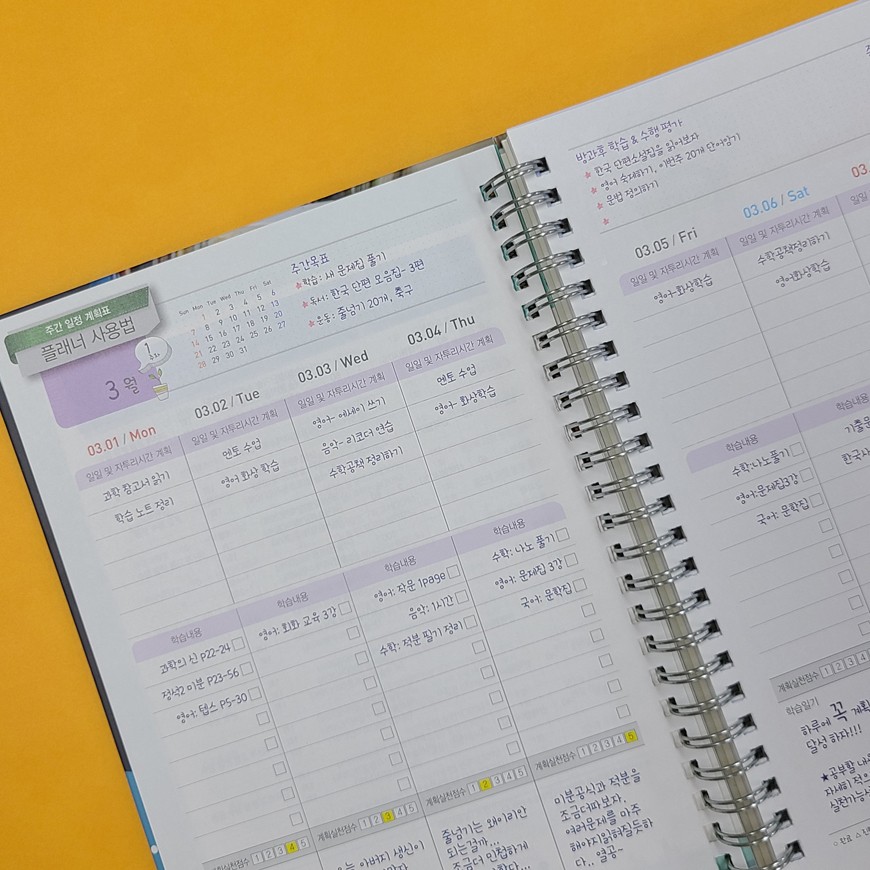 주간 일정 계획표
플래너 사용법
3월
Sun Mon Tue Wed Thu Fri Sat
1 2 3 4 5 6
7 8 9 10 11 12 13
14 15 16 17 18 19 20
21 22 23 24 25 26 27
28 29 30 31
주간목표
학습: 새 문제집 풀기
독서: 한국 단편 모음집- 3편
운동: 줄넘기 20개, 축구
03.01 / Mon
일일 및 자투리시간 계획
과학 참고서 읽기
학습 노트 정리
학습내용
과학의 신 P22-24
정석2 미분 P23-56
영어: 텝스 P5-30
계획실천점수 1 2 3 4 5
03.02 / Tue
일일 및 자투리시간 계획
멘토 수업
영어 화상 학습
학습내용
영어: 회화 교육 3강
계획실천점수 1 2 3 4 5
아버지 생신이
03.03 / Wed
일일 및 자투리시간 계획
영어- 에세이 쓰기
음악- 리코더 연습
수학공책 정리하기
학습내용
영어: 작문 1page
음악: 1시간
수학: 적분 필기 정리
계획실천점수 1 2 3 4 5
줄넘기는 왜이리안
되는걸까...
조금더 민첩하게
03.04 / Thu
일일 및 자투리시간 계획
멘토 수업
영어- 화상학습
학습내용
수학: 나노 풀기
영어: 문제집 3강
국어: 문학집
계획실천점수 1 2 3 4 5
미분공식과 적분을
조금더파보자.
여러문제를 마주
해야지읽혀질듯하
다.. 열공~
방과후 학습 & 수행평가
한국 단편소설집을 읽어보자
영어 숙제하기, 이번주 20개 단어암기
문법 정의하기
03.05 / Fri
일일 및 자투리시간 계획
영어-화상학습
학습내용
수학:나노풀기
영어:문제집3강
국어: 문학집
계획실천점수 1 2 3 4
학습일기
하루에 꼭 계획
달성 하자!!!
★공부할 내
자세히 적
실천가능
03.06 / Sat
일일 및 자투리시간 계획
수학공책정리하기
영어화상학습
학습내용
기출문
한국사
03.
일일